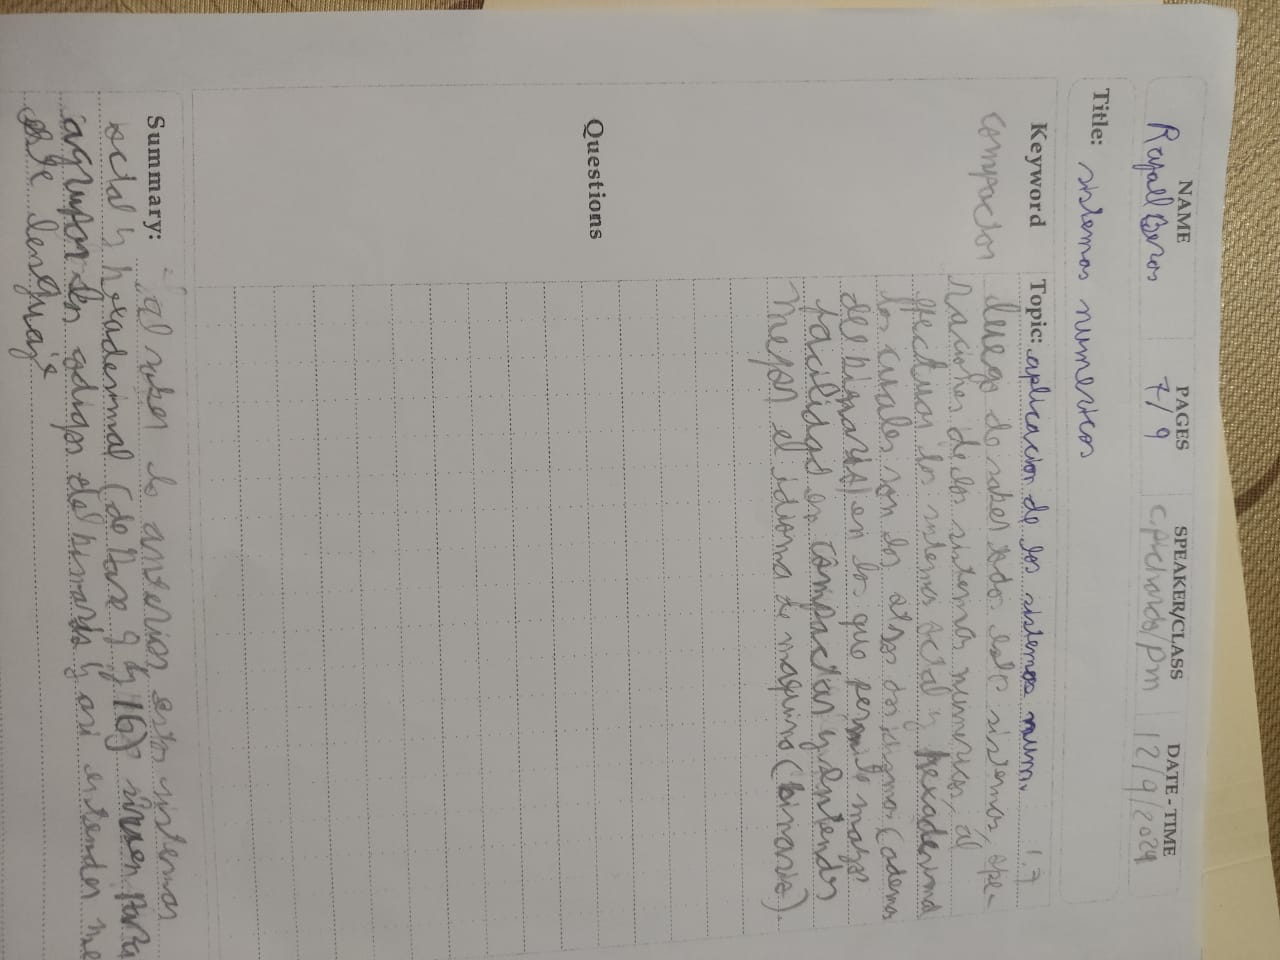 NAME PAGES SPEAKER/CLASS DATE - TIME
Rafaell 7/9 c.pichardo/pm 12/9/2024
Title: sistemas numericos
Keyword
compactar
Topic: aplicacion de los sistemas num. 1.7
luego de saber todos estos sistemas, ope-
raciones de los sistemas numericos, al
efectuar los sistemas octal y hexadecimal
los cuales son los otros dos (ademas
del binario) en los que permite mayor
facilidad en compactar y entender
mejor el idioma de maquina (binario).
Questions
Summary: al saber lo anterior estos sistemas
octal y hexadecimal (de base y 16) sirven para
agrupar los codigos del binario y asi entender me
este lenguaje